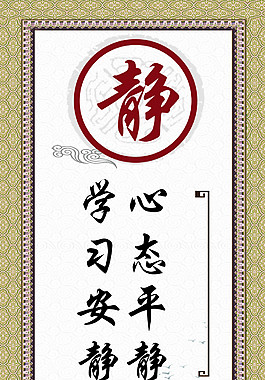 静
心态平静
学习安静